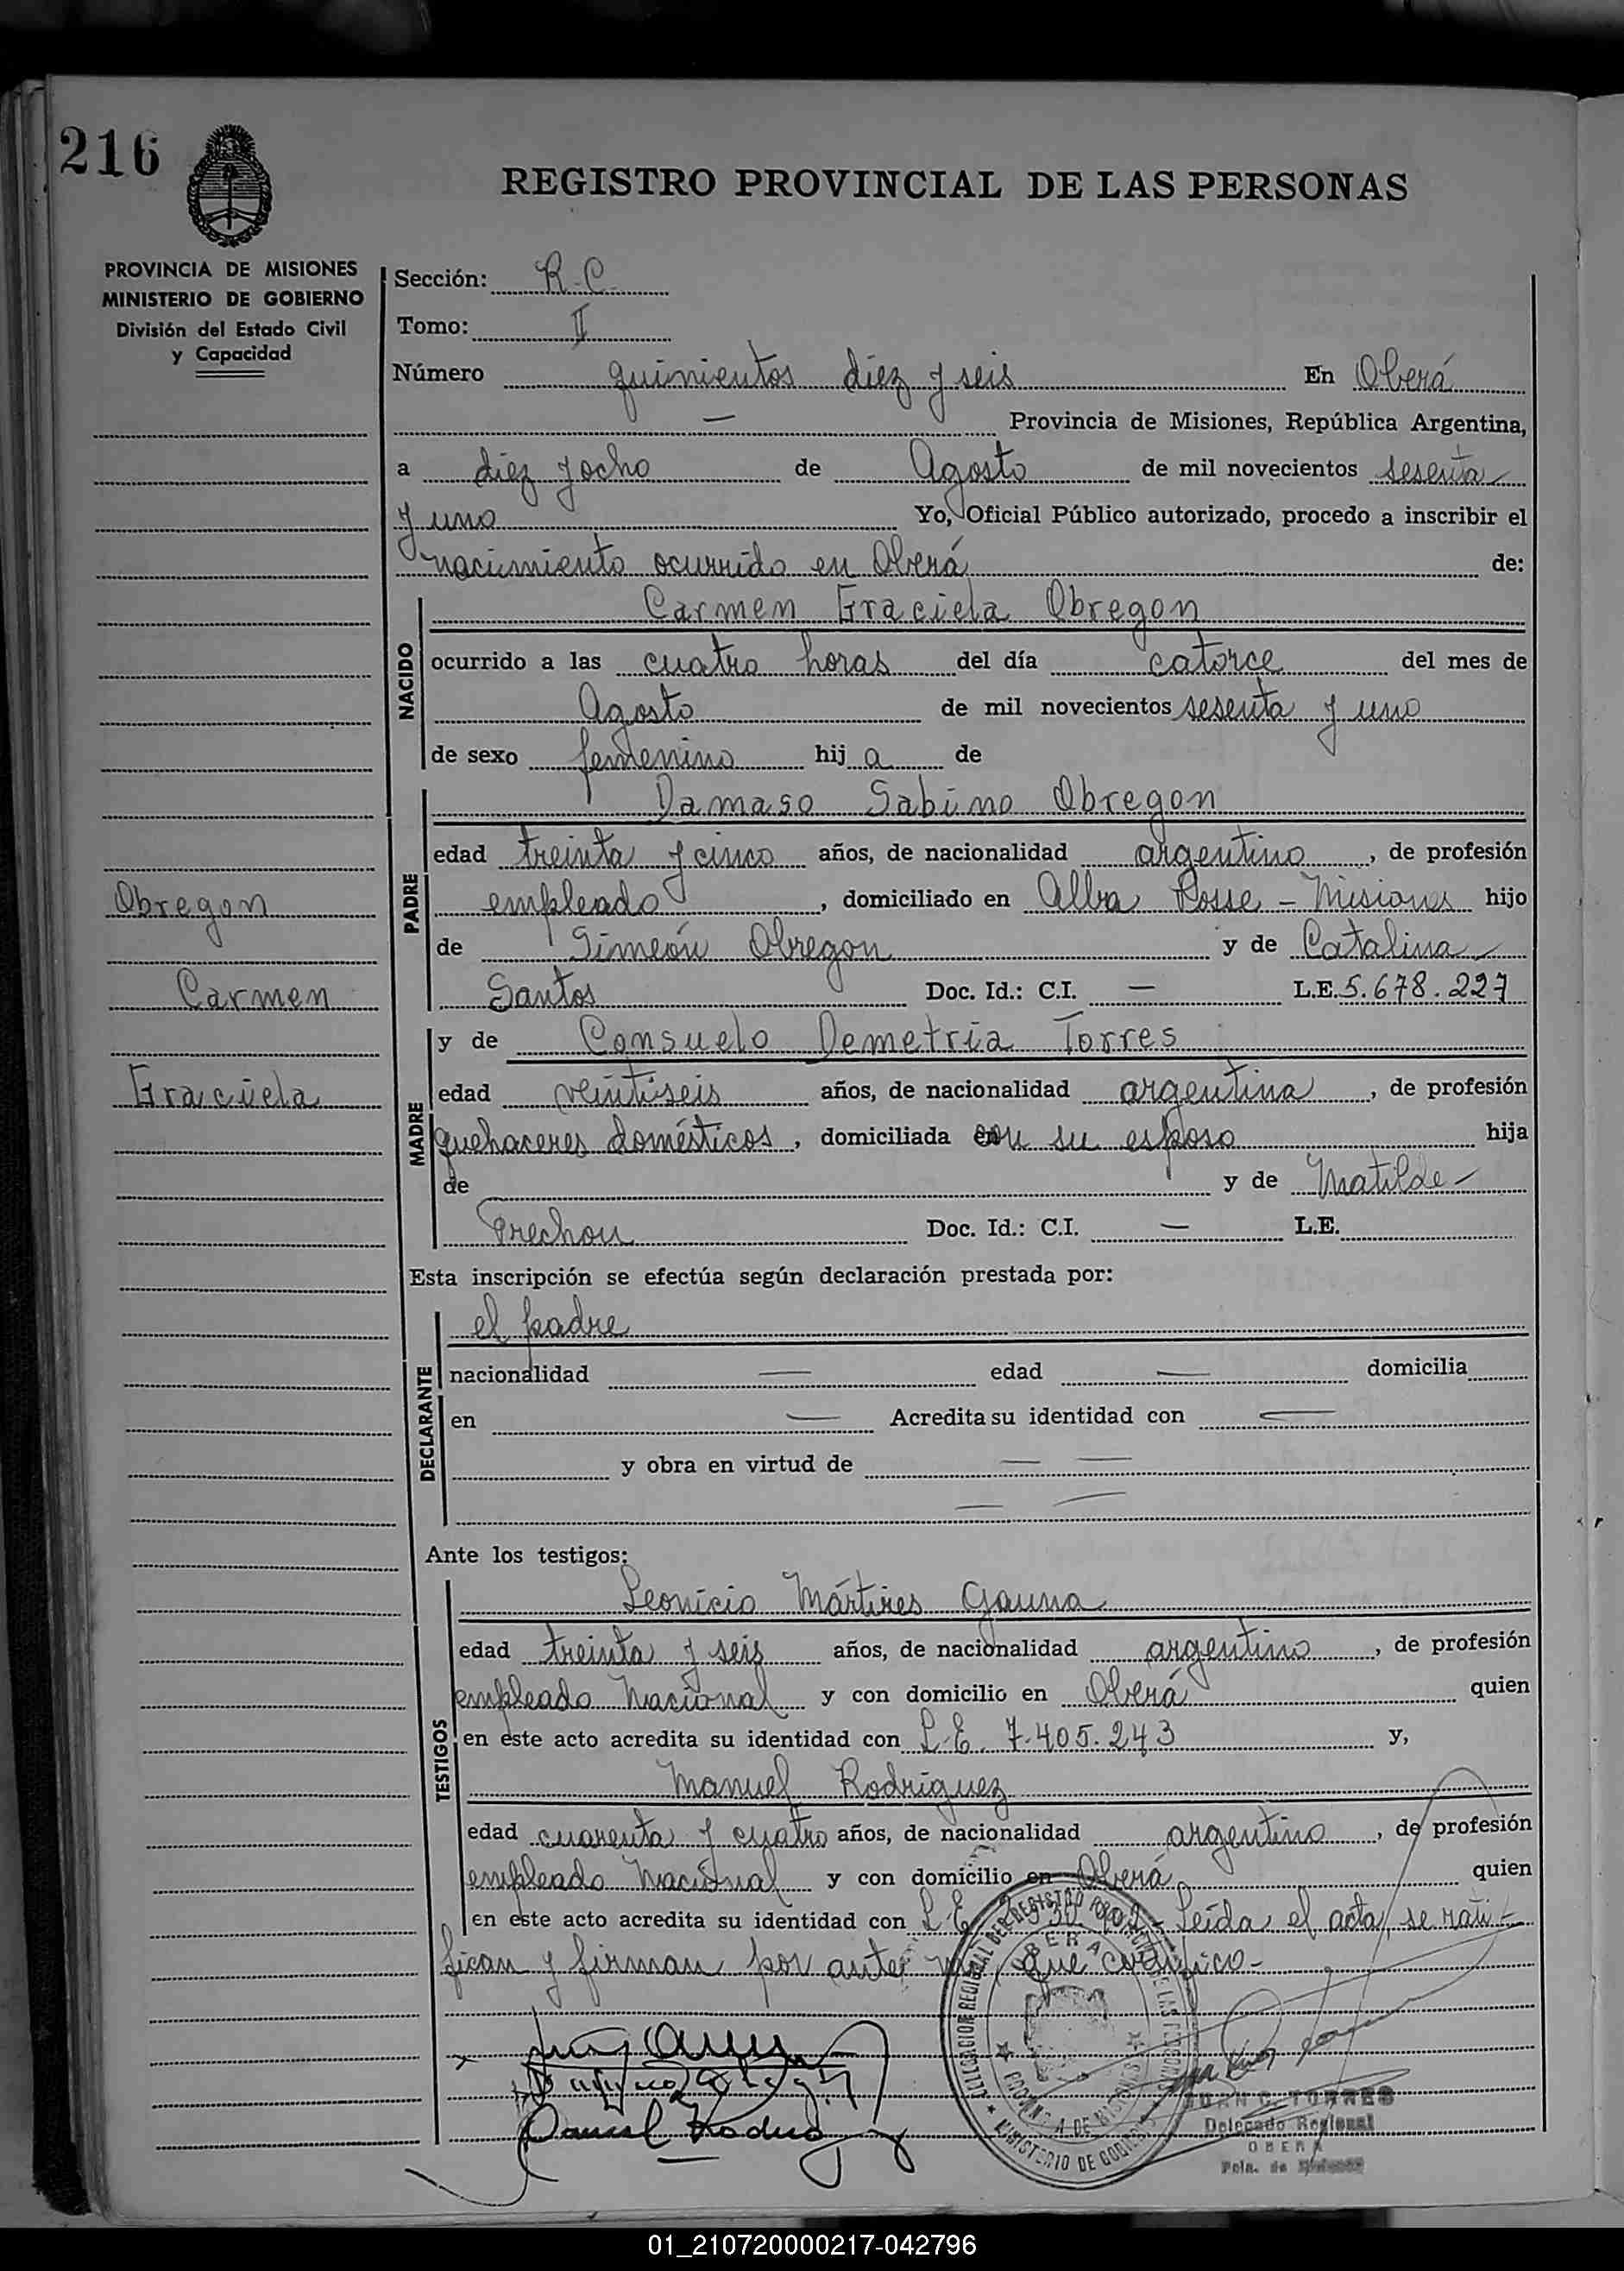 216
REGISTRO PROVINCIAL DE LAS PERSONAS
PROVINCIA DE MISIONES
MINISTERIO DE GOBIERNO
División del Estado Civil
y Capacidad
Sección: R.C.
Tomo: II
Número quinientos diez y seis En Oberá
— Provincia de Misiones, República Argentina,
a diez y ocho de Agosto de mil novecientos sesenta
y uno Yo, Oficial Público autorizado, procedo a inscribir el
nacimiento ocurrido en Oberá de:
NACIDO
Carmen Graciela Obregon
ocurrido a las cuatro horas del día catorce del mes de
Agosto de mil novecientos sesenta y uno
de sexo femenino hij a de
PADRE
Damaso Sabino Obregon
edad treinta y cinco años, de nacionalidad argentino, de profesión
empleado, domiciliado en Alba Posse - Misiones hijo
de Simeón Obregon y de Catalina
Santos Doc. Id.: C.I. — L.E. 5.678.227
Obregon
Carmen
Graciela
MADRE
y de Consuelo Demetria Torres
edad veintiseis años, de nacionalidad argentina, de profesión
quehaceres domésticos, domiciliada con su esposo hija
de y de Matilde
Doc. Id.: C.I. — L.E.
Esta inscripción se efectúa según declaración prestada por:
DECLARANTE
el padre
nacionalidad — edad — domicilia
en — Acredita su identidad con —
y obra en virtud de — —
— —
Ante los testigos:
TESTIGOS
Leonicio Mártires Gauna
edad treinta y seis años, de nacionalidad argentino, de profesión
empleado Nacional y con domicilio en Oberá quien
en este acto acredita su identidad con L.E. 7.405.243 y,
Manuel Rodriguez
edad cuarenta y cuatro años, de nacionalidad argentino, de profesión
empleado Nacional y con domicilio en Oberá quien
en este acto acredita su identidad con L.E. Leída el acta, se rati-
fican y firman por ante mí, que certifico-
MINISTERIO DE GOBIERNO
JUAN C. TORRES
Delegado Regional
OBERA
Pcia. de Misiones
01_210720000217-042796